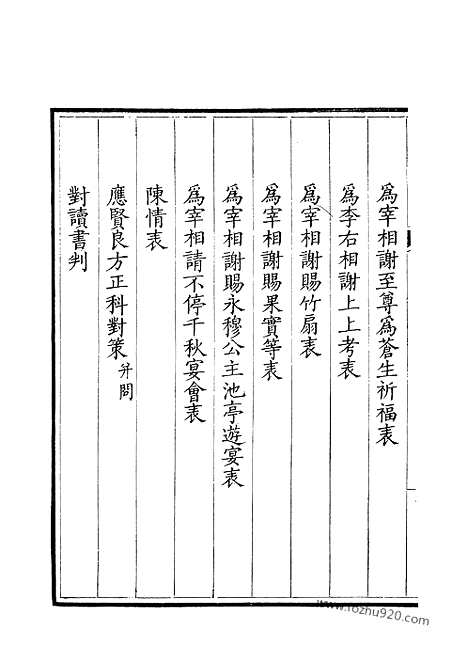 為宰相謝至尊為蒼生祈福表
為李右相謝上上考表
為宰相謝賜竹扇表
為宰相謝賜果實等表
為宰相謝賜永穆公主池亭遊宴表
為宰相請不停千秋宴會表
陳情表
應賢良方正科對策 并問
對讀書判
www.fozhu920.com